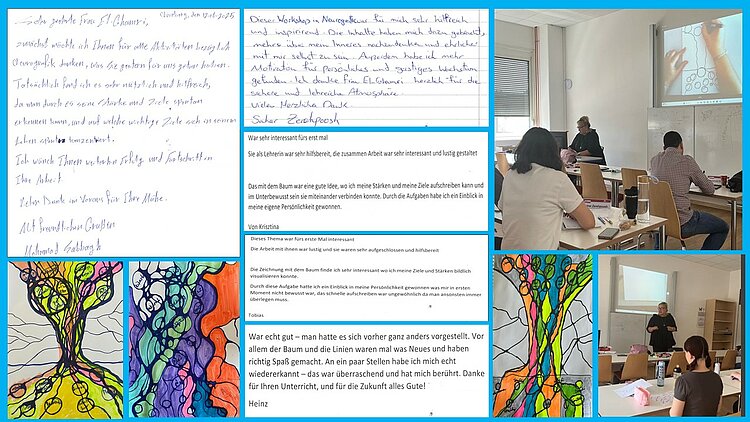 Nürnberg, den 17.06.2025
Sehr geehrte Frau El Ghamri,
zunächst möchte ich Ihnen für alle Aktivitäten bezüglich
Neurografik danken, was Sie gestern für uns getan haben.
Tatsächlich fand ich es sehr nützlich und hilfreich,
da man durch es seine Stärke und Ziele spontan
erkennen kann, und auf welche wichtige Ziele sich in seinem
Leben
Ich wünsch Ihnen weiterhin Erfolg und Fortschritten
Ihre Arbeit
Vielen Dank im Voraus für Ihre Mühe.
Mit freundlichen Grüßen
Mohamad Sabbagh
Dieser Workshop in Neurografik war für mich sehr hilfreich
und inspirierend. Die Inhalte haben mich dazu gebracht,
mehr über mein Inneres nachzudenken und ehrlicher
mit mir selbst zu sein. Außerdem habe ich mehr
Motivation für persönliches und geistiges Wachstum
gefunden. Ich danke Frau El Ghamri herzlich für die
sichere und lehrreiche Atmosphäre.
Vielen Herzlichen Dank.
Sahar Zerehpoosh
War sehr interessant fürs erst mal
Sie als Lehrerin war sehr hilfsbereit, die zusammen Arbeit war sehr interessant und lustig gestaltet
Das mit dem Baum war eine gute Idee, wo ich meine Stärken und meine Ziele aufschreiben kann und
im Unterbewusst sein sie miteinander verbinden konnte. Durch die Aufgaben habe ich ein Einblick in
meine eigene Persönlichkeit gewonnen.
Von Krisztina
Dieses Thema war fürs erste Mal interessant
Die Arbeit mit ihnen war lustig und sie waren sehr aufgeschlossen und hilfsbereit
Die Zeichnung mit dem Baum finde ich sehr interessant wo ich meine Ziele und Stärken bildlich
visualisieren konnte.
Durch diese Aufgabe hatte ich ein Einblick in meine Persönlichkeit gewonnen was mir in ersten
Moment nicht bewusst war, das schnelle aufschreiben war ungewöhnlich da man ansonsten immer
überlegen muss.
Tobias
War echt gut – man hatte es sich vorher ganz anders vorgestellt. Vor
allem der Baum und die Linien waren mal was Neues und haben
richtig Spaß gemacht. An ein paar Stellen habe ich mich echt
wiedererkannt – das war überraschend und hat mich berührt. Danke
für Ihren Unterricht, und für die Zukunft alles Gute!
Heinz